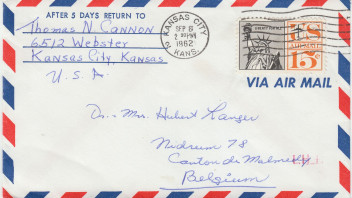 AFTER 5 DAYS RETURN TO
Thomas N. Cannon
6512 Webster
Kansas City, Kansas
U.S.A
KANSAS CITY
SEP 8
PM
1962
KANS.
US
15¢
VIA AIR MAIL
Dr. + Mrs. Hubert Langer
Nidrum 78
Canton de Malmedy
Belgium